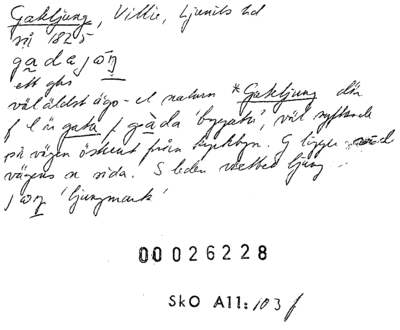 Gakljung, Villie, Ljunits hd
nr 1825
gadajɷŋ
ett ghs
väl äldst ägo- el naturn *Gakljung där
f l är gata f gàda 'bygata', väl syftande
på vägen österut från kyrkbyn. G ligger
vägens n sida. S leden ljung
jɷŋ 'ljungmark'
00026228
SkO A11: 103 f